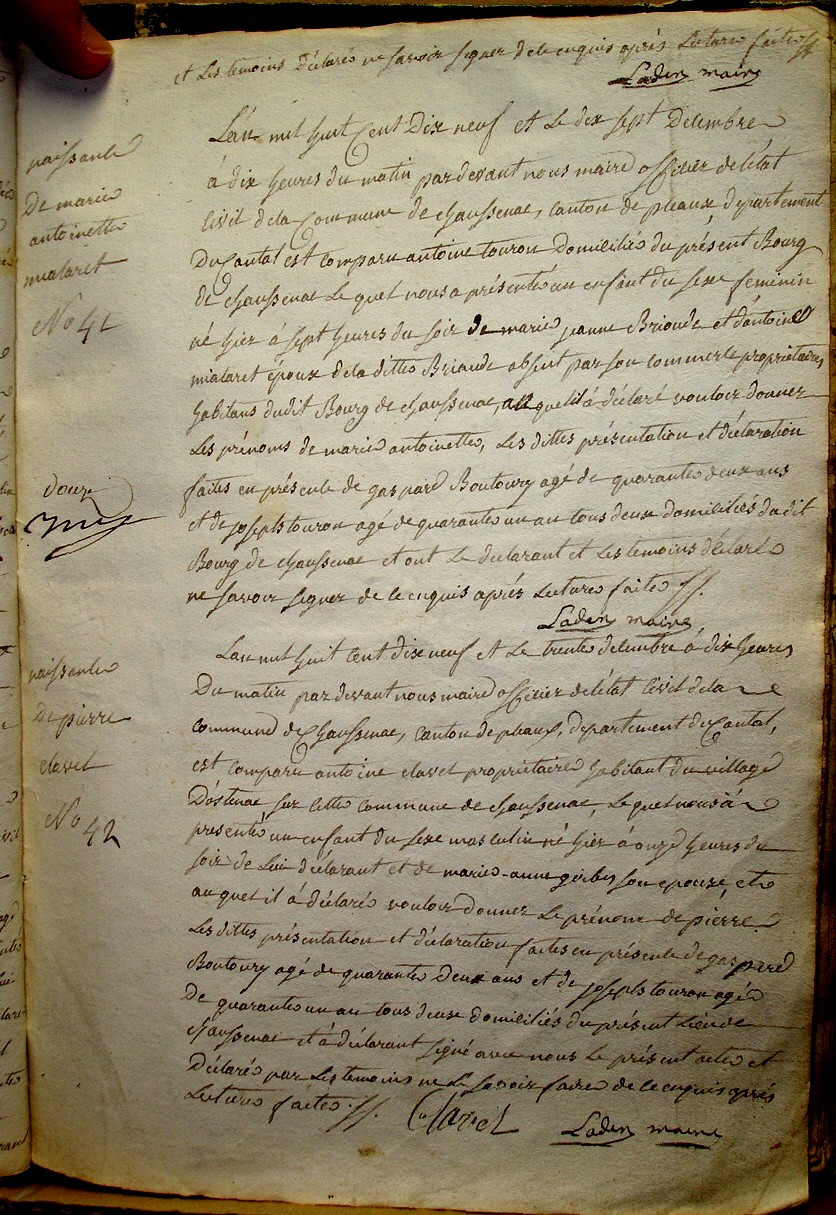 et Les temoins déclarés ne savoir signer de ce enquis après Lecture faites
Laden maire
naissance
De marie
antoinette
mialaret
No 41
L'an mil huit Cent Dix neuf et Le dix sept Decembre
à dix heures du matin par devant nous maire officier de l'état
Civil de la Commune de chaussenac, canton de pleaux, département
Du Cantal est comparu antoine touron Domicilié du présent Bourg
de chaussenac Le quel nous a présenté un enfant du sexe feminin
né hier à sept heures du soir de marie jeanne Brionde et d'antoine
mialaret époux de la ditte Briaude absent par son commerce propriétaires
habitans dudit Bourg de chaussenac, auquel il à déclaré vouloir donner
Les prénoms de marie antoinette, Les dittes présentation et déclaration
faites en présence de gaspard Boutoury agé de quarante deux ans
et de joseph touron agé de quarante un an tous deux domiciliés du dit
Bourg de chaussenac et ont Le declarant et Les temoins déclaré
ne savoir signer de ce enquis après Lecture faite
Laden maire
naissance
De pierre
clavel
No 42
L'an mil huit Cent dix neuf et Le trente decembre à dix heures
Du matin par devant nous maire officier de l'état Civil de la
commune de Chaussenac, canton de pleaux, département du Cantal,
est comparu antoine clavel propriétaire habitant du village
D'ostenac sur cette commune de chaussenac, Le quel nous à
presenté un enfant du sexe masculin né hier à onze heures du
soir de Lui déclarant et de marie-anne gerbes son epouze, et
auquel il à déclaré vouloir donner Le prénom de pierre
Les dittes présentation et déclaration faites en présence de gaspard
Boutoury agé de quarante Deux ans et de joseph touron agé
De quarante un an tous deux domiciliés du présent Lieu de
chaussenac et à déclarant signé avec nous Le présent acte et
Déclaré par Les temoins ne Le savoir faire de ce enquis après
Lecture faite
Clavel
Laden maire